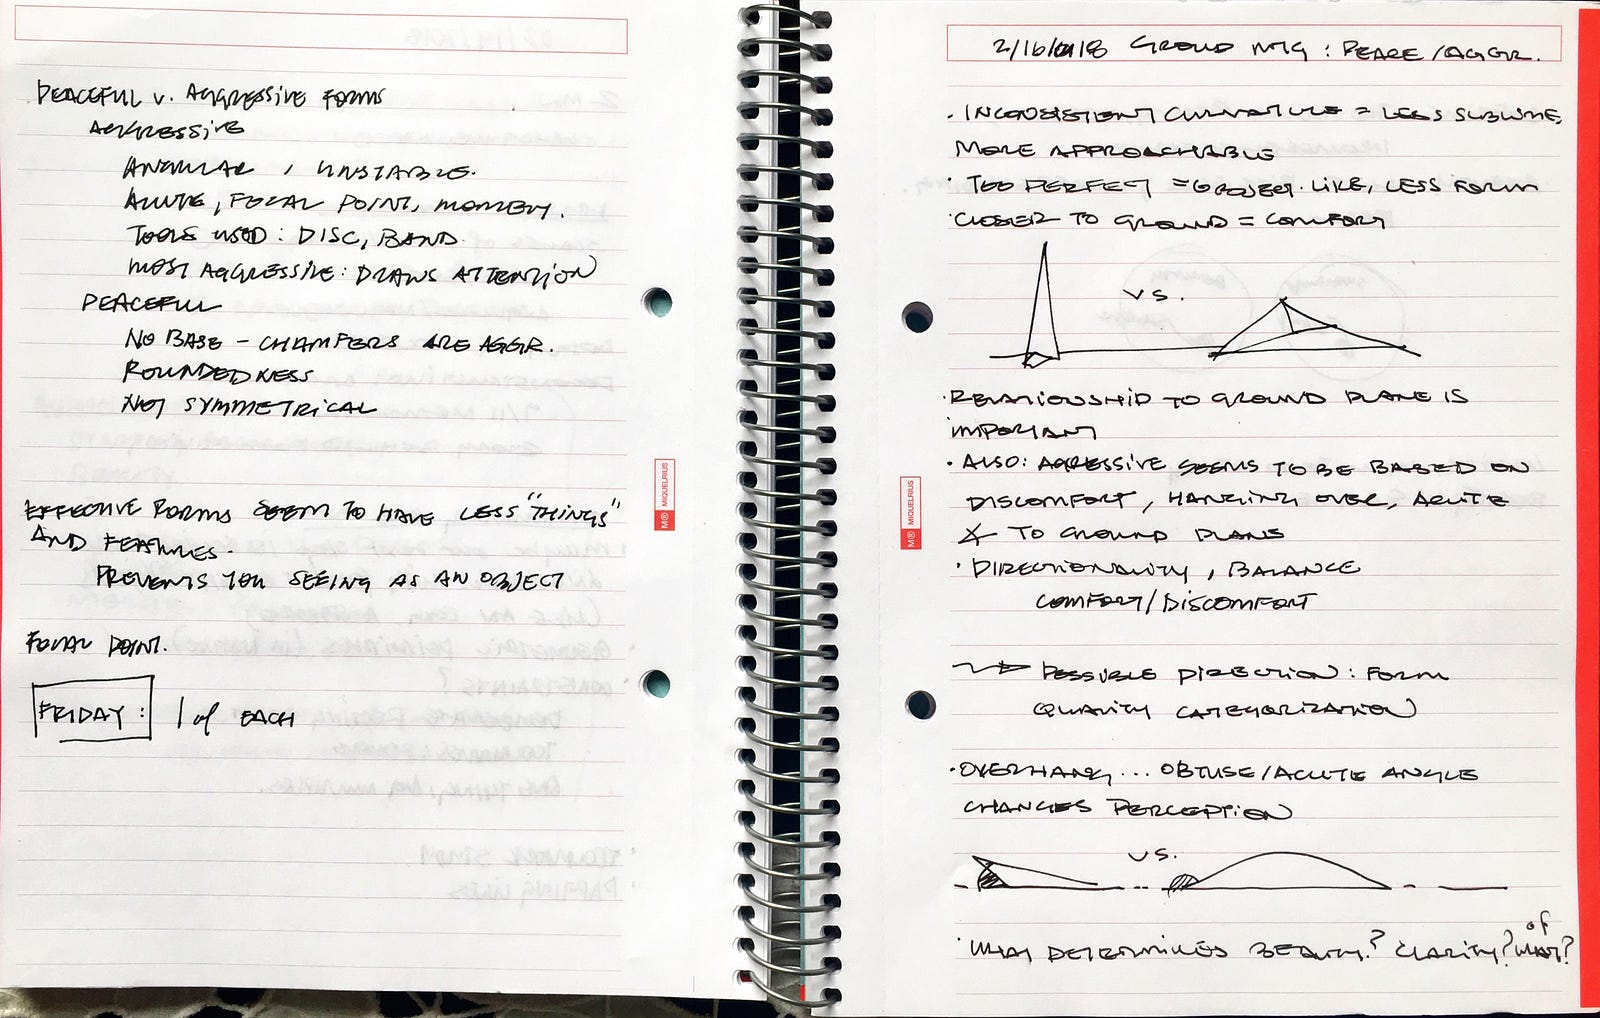 PEACEFUL v. AGGRESSIVE FORMS
AGGRESSIVE
ANGULAR, UNSTABLE.
ACUTE, FOCAL POINT,
TOOLS USED: DISC, BAND.
MOST AGGRESSIVE: DRAWS ATTENTION
PEACEFUL
NO BASE - CHAMFERS ARE AGGR.
ROUNDEDNESS
NOT SYMMETRICAL
EFFECTIVE FORMS SEEM TO HAVE LESS "THINGS"
AND FEATURES.
PREVENTS YOU SEEING AS AN OBJECT
FOCAL POINT.
FRIDAY: 1 of EACH
M® MIQUELRIUS
2/16/2018 GROUND MTG: PEACE/AGGR.
· INCONSISTENT CURVATURE = LESS SUBLIME,
MORE APPROACHABLE
· TOO PERFECT = OBJECT-LIKE, LESS FORM
· CLOSER TO GROUND = COMFORT
VS.
· RELATIONSHIP TO GROUND PLANE IS
IMPORTANT
· ALSO: AGRESSIVE SEEMS TO BE BASED ON
DISCOMFORT, HANGING OVER, ACUTE
∠ TO GROUND PLANE
· DIRECTIONALITY, BALANCE
COMFORT/DISCOMFORT
POSSIBLE DIRECTION: FORM
QUALITY CATEGORIZATION
· OVERHANG... OBTUSE/ACUTE ANGLE
CHANGES PERCEPTION
VS.
· WHAT DETERMINES BEAUTY? CLARITY? of WHAT?
M® MIQUELRIUS